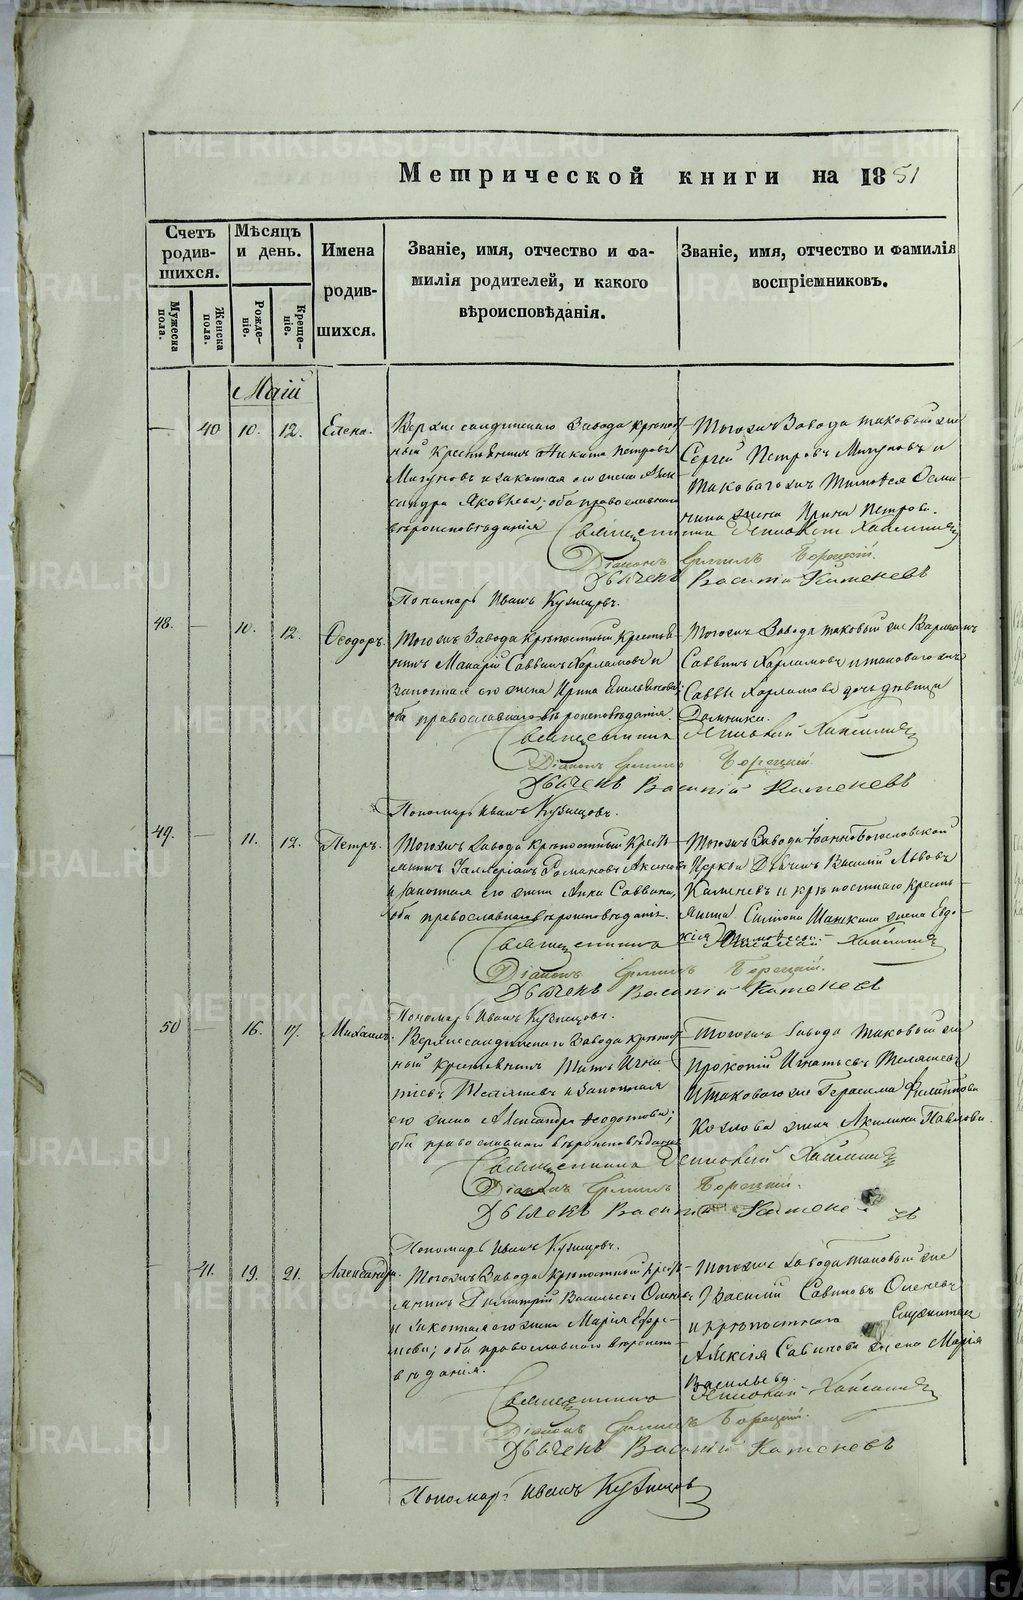 METRIKI.GASO-URAL.RU
Метрической книги на 1851
Счетъ родив-шихся.
Мужеска пола.
Женска пола.
Мѣсяцъ и день.
Рожде-ніе.
Креще-ніе.
Имена родив-шихся.
Званіе, имя, отчество и фа-
милія родителей, и какого
вѣроисповѣданія.
Званіе, имя, отчество и фамилія
воспріемниковъ.
Маій
— 40 10. 12. Елена.
Верхнесалдинскаго Завода крѣпост-
ный крестьянинъ Никита Петровъ
Мигуновъ и законная его жена Алек-
сандра Яковлева; оба православнаго
вѣроисповѣданія
Тогожъ Завода таковый же
Сергей Петровъ Мигуновъ и
таковагожъ Тимофея
жена Ирина Петрова.
Священникъ
Діаконъ Борецкій.
Дьячекъ Василій Каменевъ
Пономарь Иванъ Кузнецовъ.
48. — 10. 12. Ѳеодоръ.
Тогожъ Завода крѣпостный крестья-
нинъ Макарій Саввинъ Харламовъ и
законная его жена Ирина Емельянова;
оба православнаго вѣроисповѣданія.
Тогожъ Завода таковый же
Саввинъ Харламовъ и таковагожъ
Саввы Харламова дочь дѣвица
Домника.
Священникъ
Діаконъ Борецкій.
Дьячекъ Василій Каменевъ
Пономарь Иванъ Кузнецовъ.
49. — 11. 12. Петръ.
Тогожъ Завода крѣпостный кресть-
янинъ Романовъ
и законная его жена Анна Саввина,
оба православнаго вѣроисповѣданія.
Тогожъ Завода Іоанно-Богословской
Церкви Дьячекъ Василій Львовъ
Каменевъ и крѣпостнаго кресть-
янина Симеона жена Евдо-
кія
Священникъ
Діаконъ Борецкій.
Дьячекъ Василій Каменевъ
Пономарь Иванъ Кузнецовъ.
50 — 16. 17. Михаилъ.
Верхнесалдинскаго Завода крѣпост-
ный крестьянинъ Титъ Игна-
тьевъ и законная
его жена Александра Ѳеодотова;
оба православнаго вѣроисповѣданія
Тогожъ Завода таковый же
Прокопій Игнатьевъ
и таковаго же Герасима Филиппова
Козлова жена Акилина Павлова.
Священникъ
Діаконъ Борецкій.
Дьячекъ Василій Каменевъ
Пономарь Иванъ Кузнецовъ.
— 41. 19. 21. Александра.
Тогожъ Завода крѣпостный кресть-
янинъ Димитрій Васильевъ Оленевъ
и законная его жена Марія Ефре-
мова; оба православнаго вѣроиспо-
вѣданія.
Тогоже Завода таковый же
Василій Савиновъ Оленевъ
и крѣпостнаго Служителя
Алексія Савинова жена Марія
Васильева.
Священникъ
Діаконъ Борецкій.
Дьячекъ Василій Каменевъ
Пономарь Иванъ Кузнецовъ